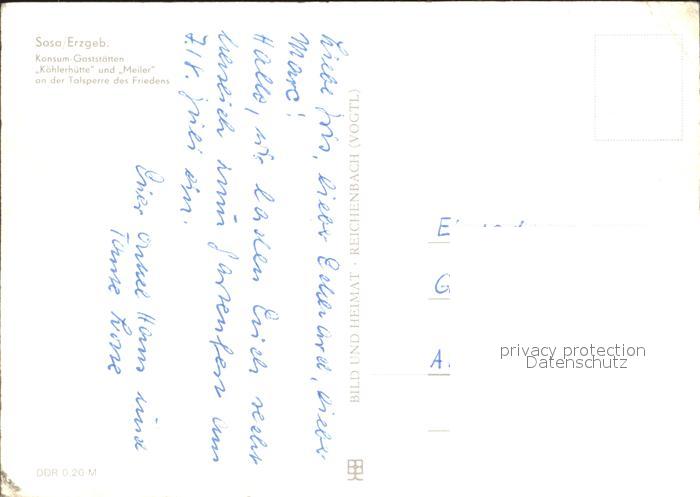 Sosa/Erzgeb.
Konsum-Gaststätten
„Köhlerhütte“ und „Meiler“
an der Talsperre des Friedens
Liebe Iris, lieber Eckehard, lieber
Marc!
Hallo, wir laden Euch recht
herzlich zum Gartenfest am
7./8. Juli ein.
Euer Onkel Hans und
Tante
BILD UND HEIMAT · REICHENBACH (VOGTL)
E
G
A.
privacy protection
Datenschutz
DDR 0,20 M